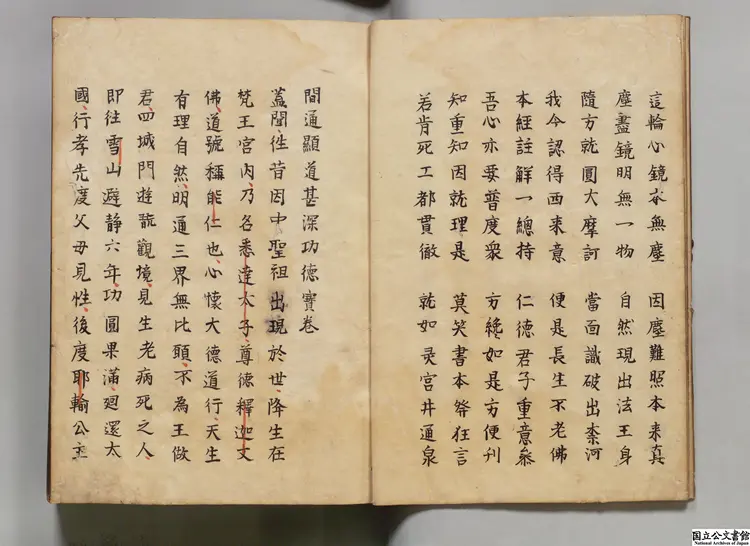 這輪心鏡亦無塵 因塵難照本來真
塵盡鏡明無一物 自然現出法王身
隨方就圓大摩訶 當面識破出柰河
我今認得西来意 便是長生不老佛
本經註解一總持 仁德君子重意叅
吾心亦要普度衆 方纔如是方便刋
知重知因就理是 莫笑書本發狂言
若肯死工都貫徹 就如灵宫井通泉
間通顯道甚深功德寶卷
蓋聞徃昔因中聖祖出現於世降生在
梵王宮内乃名悉達太子尊德釋迦文
佛道號稱能仁也心懷大德道行天生
有理自然明通三界無比頭不為王做
君四城門遊翫觀境見生老病死之人
即徃雪山避静六年功圓果滿廻還太
國行孝先度父母見性後度耶輸公主
国立公文書館
National Archives of Japan